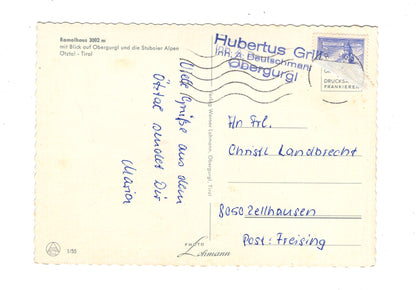 Ramolhaus 3002 m
mit Blick auf Obergurgl und die Stubaier Alpen
Ötztal - Tirol
Hubertus Grill
Inh. A. Gautschmann
Obergurgl
DRUCKSA
FRANKIEREN
Viele Grüße aus dem
Ötztal sendet Dir
Marion
Verlag Werner Lohmann, Obergurgl, Tirol
An Frl.
Christl Landbrecht
8050 Zellhausen
Post: Freising
PHOTO
Lohmann
1/55